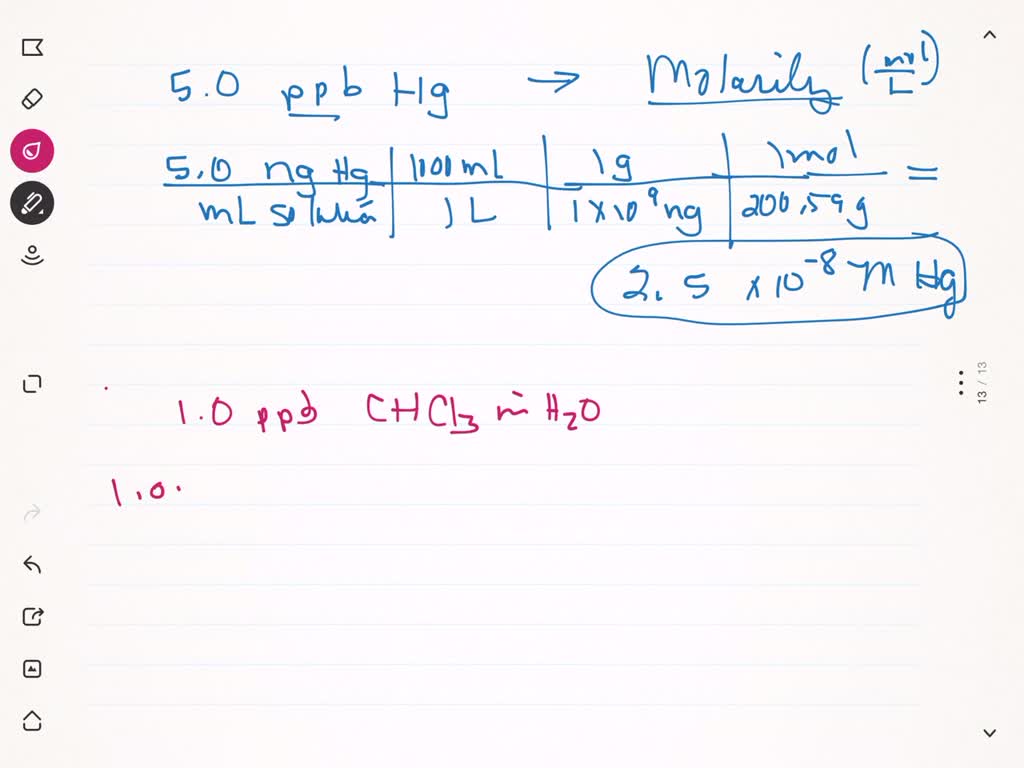 5.0 ppb Hg → Molarity (mol/L)
5.0 ng Hg | 1000 mL | 1g | 1mol =
mL solution | 1L | 1 x 10⁹ ng | 200.59g
2.5 x 10⁻⁸ M Hg
1.0 ppb CHCl₃ in H₂O
1.0.
13 / 13